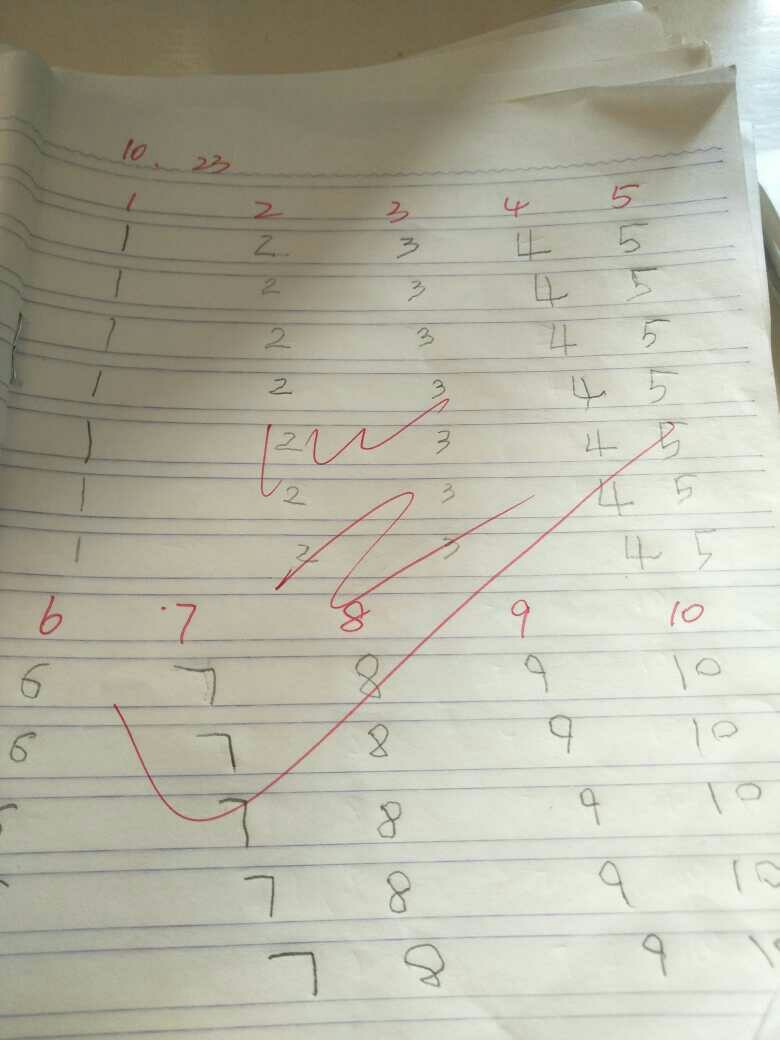 10. 23
1 2 3 4 5
1 2 3 4 5
1 2 3 4 5
1 2 3 4 5
1 2 3 4 5
1 2 3 4 5
1 2 3 4 5
1 2 3 4 5
6 7 8 9 10
6 7 8 9 10
6 7 8 9 10
7 8 9 10
7 8 9 10
7 8 9